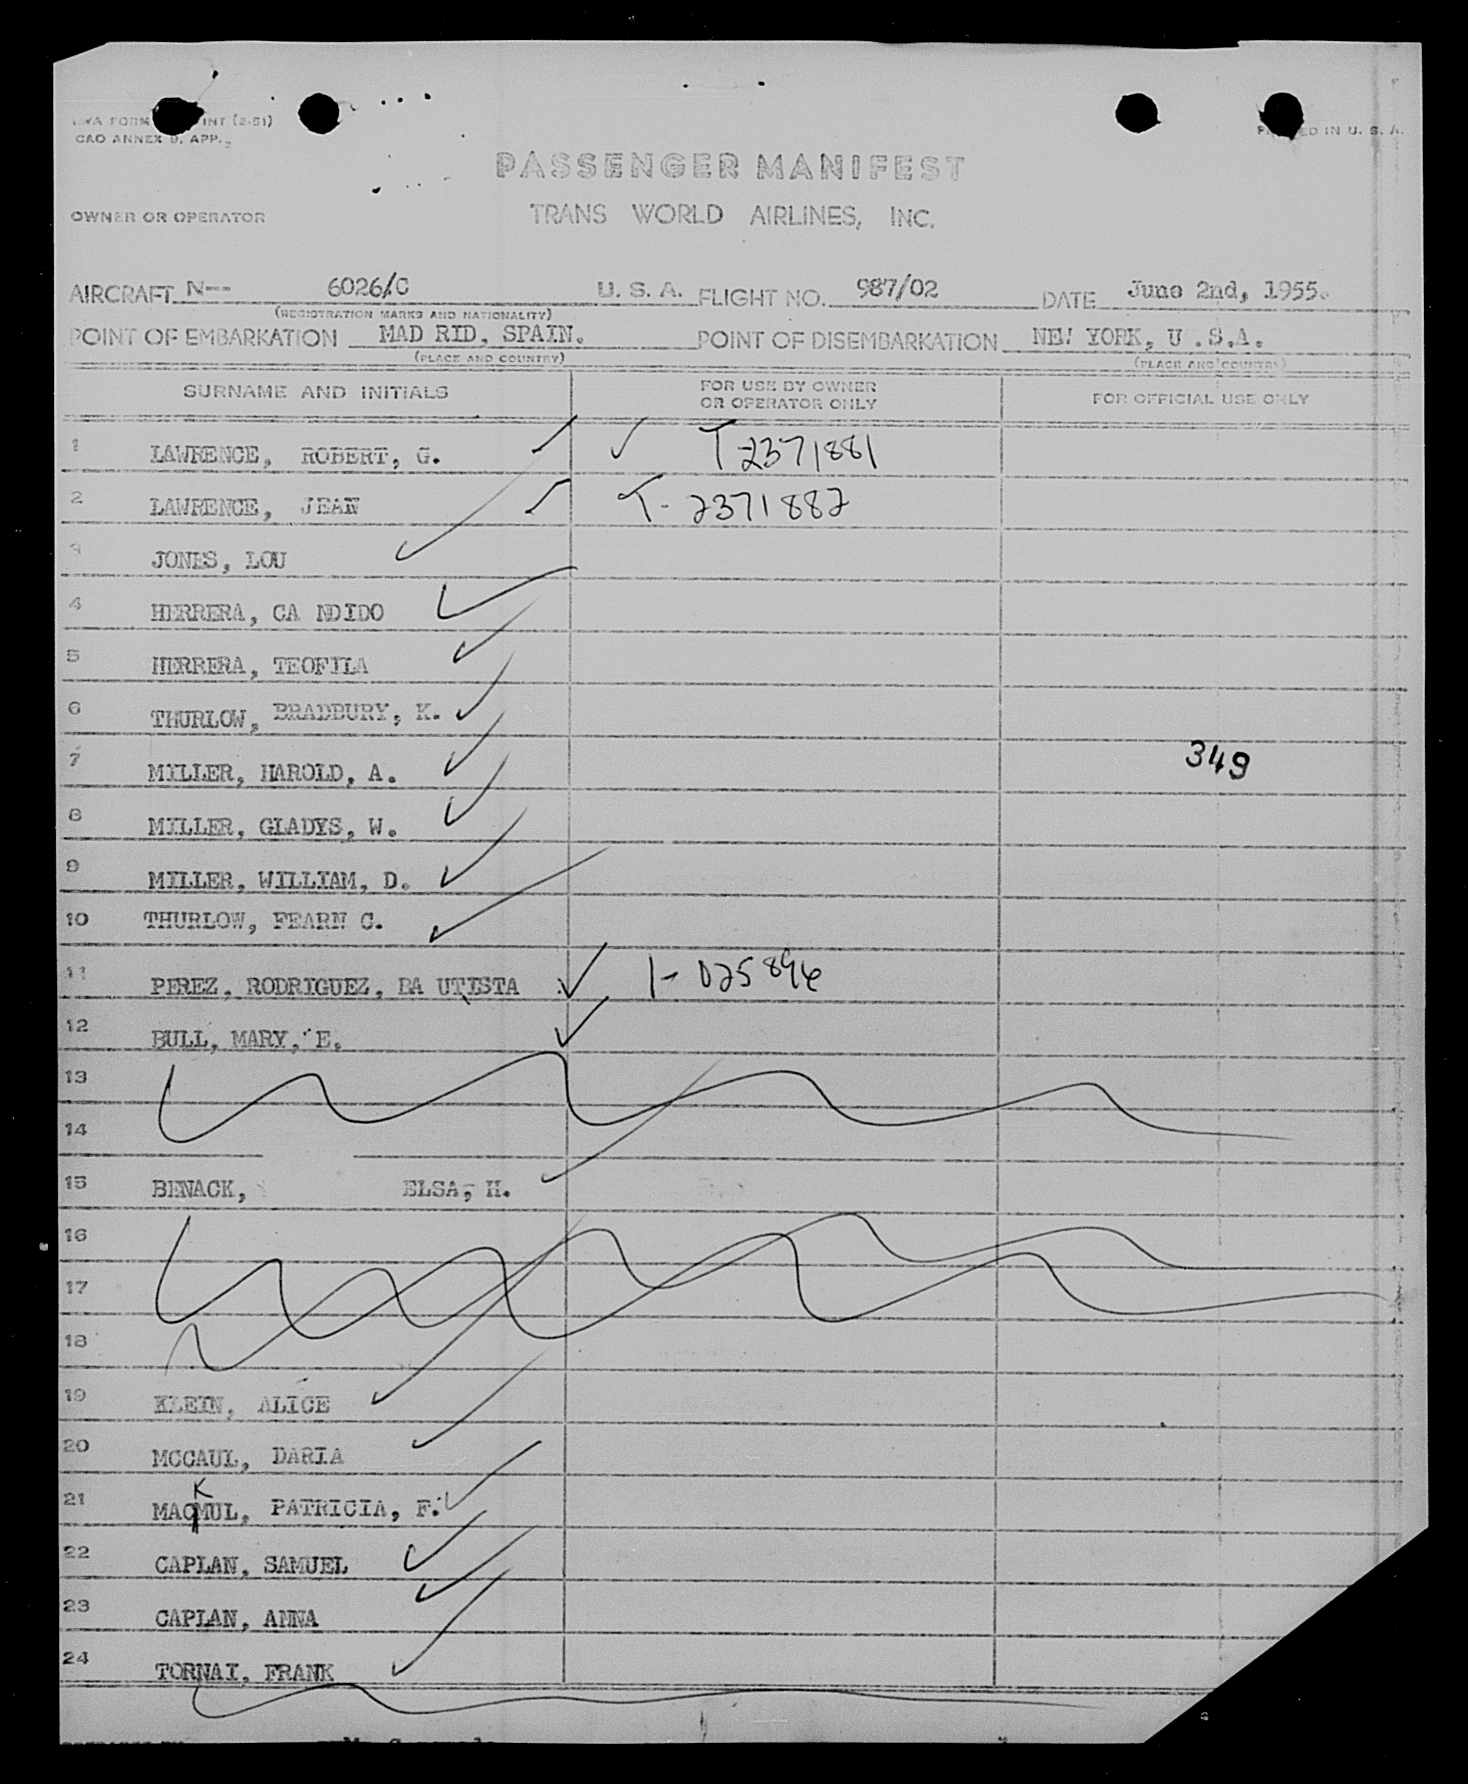 FORM INT (2-51)
CAO ANNEX 9, APP.
IN U. S. A.
PASSENGER MANIFEST
OWNER OR OPERATOR TRANS WORLD AIRLINES, INC.
AIRCRAFT N-- 6026/C U. S. A. FLIGHT NO. 987/02 DATE June 2nd, 1955.
(REGISTRATION MARKS AND NATIONALITY)
POINT OF EMBARKATION MAD RID, SPAIN. POINT OF DISEMBARKATION NEW YORK, U .S.A.
(PLACE AND COUNTRY) (PLACE AND COUNTRY)
SURNAME AND INITIALS FOR USE BY OWNER OR OPERATOR ONLY FOR OFFICIAL USE ONLY
1 LAWRENCE, ROBERT, G. T-2371881
2 LAWRENCE, JEAN T-2371882
3 JONES, LOU
4 HERRERA, CA NDIDO
5 HERRERA, TEOFILA
6 THURLOW, BRADBURY, K.
7 MILLER, HAROLD, A. 349
8 MILLER, GLADYS, W.
9 MILLER, WILLIAM, D.
10 THURLOW, FEARN C.
11 PEREZ, RODRIGUEZ, BA UTISTA
12 BULL, MARY, E.
13
14
15 BENACK, ELSA, H.
16
17
18
19 KLEIN, ALICE
20 MCCAUL, DARIA
K
21 MACMUL, PATRICIA, F.
22 CAPLAN, SAMUEL
23 CAPLAN, ANNA
24 TORNAI, FRANK